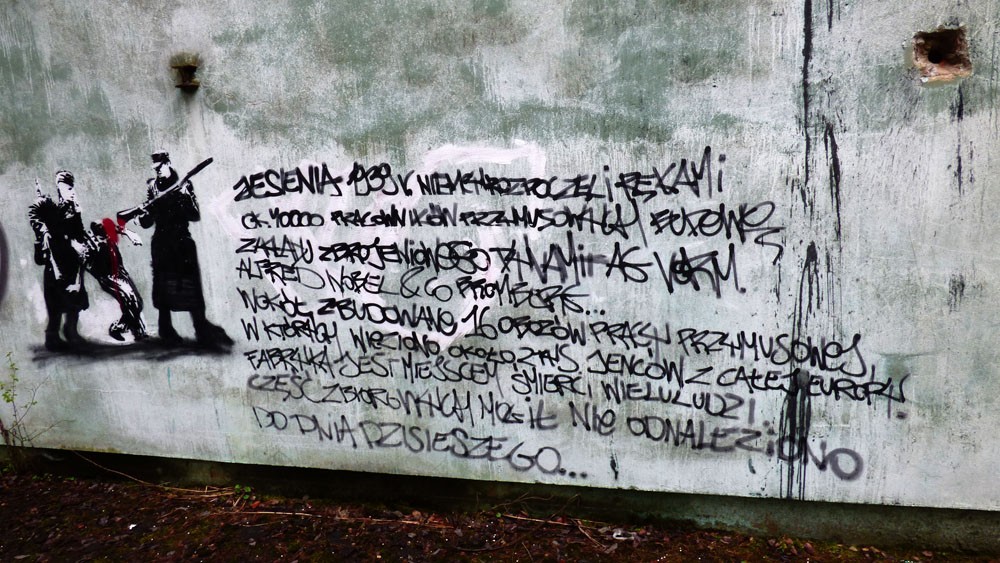 JESIENIĄ 1939 r. NIEMCY ROZPOCZĘLI RĘKAMI
OK. 40000 PRACOWNIKÓW PRZYMUSOWYCH BUDOWĘ
ZAKŁADU ZBROJENIOWEGO DYNAMIT AG VORM.
ALFRED NOBEL & CO BROMBERG...
WOKÓŁ ZBUDOWANO 16 OBOZÓW PRACY PRZYMUSOWEJ,
W KTÓRYCH WIĘZIONO OKOŁO JENCÓW Z CAŁEJ EUROPY.
FABRYKA JEST MIEJSCEM ŚMIERCI WIELU LUDZI
CZĘŚĆ ZBIOROWYCH MOGIŁ NIE ODNALEZIONO
DO DNIA DZISIEJSZEGO...